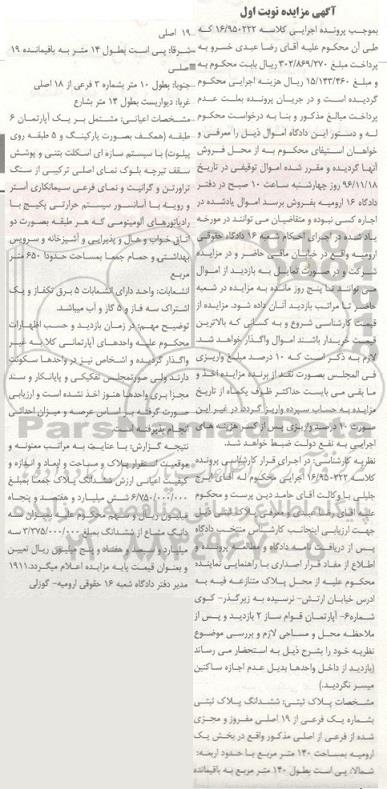 آگهی مزایده نوبت اول
بموجب پرونده اجرایی کلاسه ۱۶/۹۵۰۲۲۲ که
طی آن محکوم علیه آقای رضا عبدی خسرو به
پرداخت مبلغ ۳۰۲/۸۶۹/۲۷۰ ریال بابت محکوم به
و مبلغ ۱۵/۱۴۳/۴۶۰ ریال هزینه اجرایی محکوم
گردیده است و در جریان پرونده بعلت عدم
پرداخت مبالغ مذکور و بنا به درخواست محکوم
له و دستور این دادگاه اموال ذیل را معرفی و
خواهان استیفای محکوم به از محل فروش
آنها گردیده و مقرر شده اموال توقیفی در تاریخ
۹۶/۱۱/۱۸ روز چهارشنبه ساعت ۱۰ صبح در دفتر
دادگاه ۱۶ ارومیه بفروش برسد اموال یادشده در
اجاره کسی نبوده و متقاضیان می توانند در مورخه
یاد شده در اجرای احکام شعبه ۱۶ دادگاه حقوقی
ارومیه واقع در خیابان مافی حاضر و در مزایده
شرکت و در صورت تمایل به بازدید از اموال
می توانند تا پنج روز مانده به مزایده در شعبه
حاضر تا مراتب بازدید آنان داده شود. مزایده از
قیمت کارشناسی شروع و به کسانی که بالاترین
قیمت خریدار باشند اموال واگذار خواهد شد.
لازم به ذکر است که ۱۰ درصد مبلغ واریزی
فی المجلس بصورت نقد از برنده مزایده اخذ و
ما بقی می بایست حداکثر ظرف یکماه از تاریخ
مزایده به حساب سپرده واریز گردد در غیر این
صورت ۱۰ درصد واریزی پس از کسر هزینه های
اجرایی به نفع دولت ضبط خواهد شد.
نظریه کارشناسی: در اجرای قرار کارشناسی پرونده
کلاسه ۱۶/۹۵۰۲۲۲ اجرایی محکوم له آقای ایرج
جلیلی با وکالت آقای حامد دین پرست و محکوم
علیه آقای رضا عبدی و معرفی پلاک
جهت ارزیابی اینجانب کارشناس منتخب دادگاه
پس از دریافت نامه دادگاه و مطالعه پرونده و
اطلاع از مفاد قرار اصداری با راهنمایی نماینده
محکوم علیه از محل پلاک متنازعه فیه به
ادرس خیابان ارتش- نرسیده به زیرگذر- کوی
شماره۶- آپارتمان قوام ساز ۲ بازدید و پس از
ملاحظه محل و مساحی لازم و بررسی موضوع
نظریه خود را بشرح ذیل به استحضار می رساند
(بازدید از داخل واحدها بدیل عدم اجازه ساکنین
میسر نگردید.)
مشخصات پلاک ثبتی: ششدانگ پلاک ثبتی
بشماره یک فرعی از ۱۹ اصلی مفروز و مجزی
شده از فرعی از اصلی مذکور واقع در بخش یک
ارومیه بمساحت ۱۴۰ متر مربع با حدود اربعه:
شمالا: پی است بطول ۱۴۰ متر مربع به باقیمانده
۱۹ اصلی
شرقا: پی است بطول ۱۴ متر به باقیمانده ۱۹
اصلی
جنوبا: بطول ۱۰ متر بشماره ۳ فرعی از ۱۸ اصلی
غربا: دیواریست بطول ۱۴ متر بشارع
مشخصات اعیانی: مشتمل بر یک آپارتمان ۶
طبقه (همکف بصورت پارکینگ و ۵ طبقه روی
پیلوت) با سیستم سازه ای اسکلت بتنی و پوشش
سقف تیرچه بلوک نمای اصلی ترکیبی از سنگ
تراورتن و گرانیت و نمای فرعی سیمانکاری آستر
و رویه با آسانسور سیستم حرارتی پکیج با
رادیاتورهای آلومینیومی که هر طبقه بصورت دو
اتاق خواب و هال و پذیرایی و آشپزخانه و سرویس
بهداشتی و حمام جمعا بمساحت حدودا ۶۵۰ متر
مربع
انشعابات: واحد دارای انشعابات ۵ برق تکفاز و یک
اشتراک سه فاز و ۵ گاز و آب میباشد.
توضیح مهم: در زمان بازدید و حسب اظهارات
محکوم علیه واحدهای آپارتمانی کلا به غیر
واگذار گردیده و اشخاص نیز در واحدها سکونت
دارند ولی صورتمجلس تفکیکی و پایانکار و سند
مجزا بری واحدها هنوز اخذ نشده است و ارزیابی
صورت گرفته بر اساس عرصه و میزان احداثی
انجام پذیرفته است
نتیجه گزارش: با عنایت به مراتب معنونه و
موقعیت استقرار پلاک و مساحت و ابعاد و اندازه و
کیفیت اعیانی ارزش ششدانگ پلاک جمعا بمبلغ
۶/۷۵۰/۰۰۰/۰۰۰ شش میلیارد و هفتصد و پنجاه
میلیون ریال و سهم محکوم علیه بمیزان سه
دانگ مشاع از ششدانگ بمبلغ ۳/۳۷۵/۰۰۰/۰۰۰ سه
میلیارد و سیصد و هفتاد و پنج میلیون ریال تعیین
و بعنوان قیمت پایه مزایده اعلام میگردد.۱۹۱۱
مدیر دفتر دادگاه شعبه ۱۶ حقوقی ارومیه- گوزلی